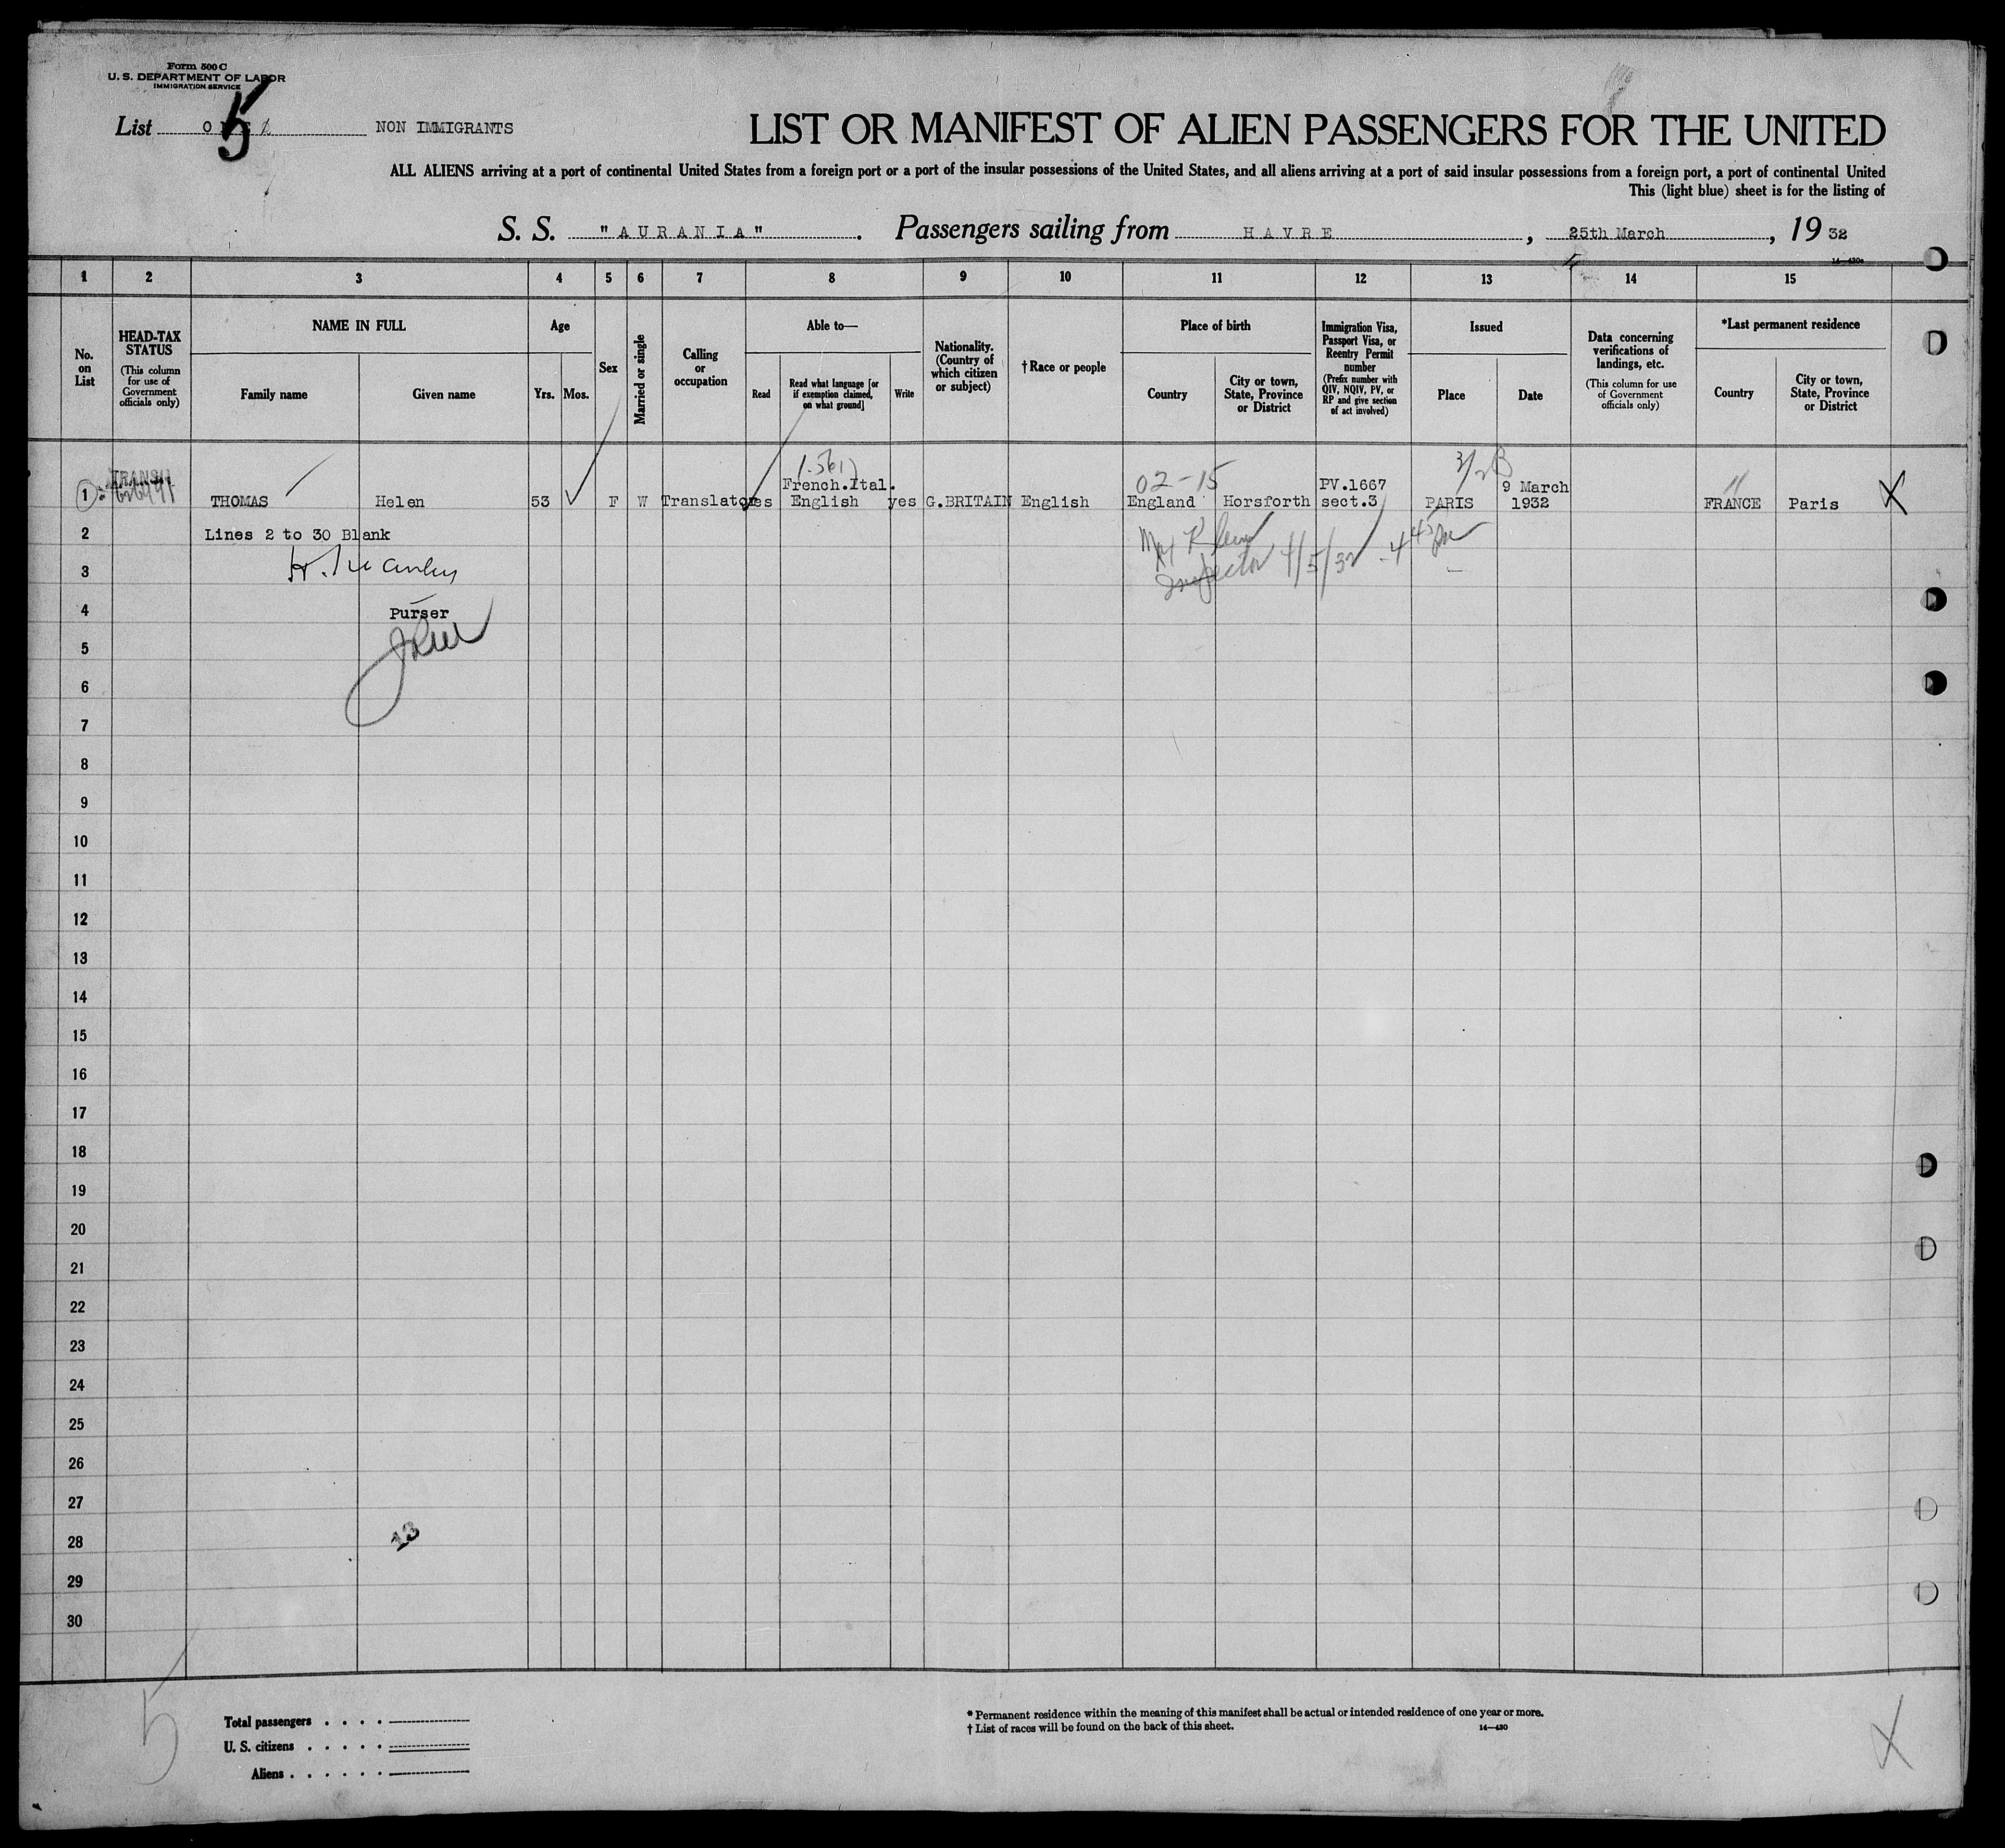 Form 500 C
U. S. DEPARTMENT OF LABOR
IMMIGRATION SERVICE
List 5 NON IMMIGRANTS
LIST OR MANIFEST OF ALIEN PASSENGERS FOR THE UNITED
ALL ALIENS arriving at a port of continental United States from a foreign port or a port of the insular possessions of the United States, and all aliens arriving at a port of said insular possessions from a foreign port, a port of continental United
This (light blue) sheet is for the listing of
S. S. "AURANIA". Passengers sailing from HAVRE, 25th March, 19 32
1 2 3 4 5 6 7 8 9 10 11 12 13 14 15
No. on List
HEAD-TAX STATUS
(This column for use of Government officials only)
NAME IN FULL
Family name
Given name
Age
Yrs. Mos.
Sex
Married or single
Calling or occupation
Able to—
Read
Read what language [or if exemption claimed, on what ground]
Write
Nationality. (Country of which citizen or subject)
† Race or people
Place of birth
Country
City or town, State, Province or District
Immigration Visa, Passport Visa, or Reentry Permit number
(Prefix number with QIV, NQIV, PV, or RP and give section of act involved)
Issued
Place
Date
Data concerning verifications of landings, etc.
(This column for use of Government officials only)
*Last permanent residence
Country
City or town, State, Province or District
TRANSIT
02-15
French.Ital. PV.1667 9 March
1 THOMAS Helen 53 F W Translator yes English yes G.BRITAIN English England Horsforth sect.3 PARIS 1932 FRANCE Paris X
2 Lines 2 to 30 Blank
Inspector 4/5/32 - 4 45 PM
3
4 Purser
5
6
7
8
9
10
11
12
13
14
15
16
17
18
19
20
21
22
23
24
25
26
27
28
29
30
5
Total passengers
U. S. citizens
Aliens
* Permanent residence within the meaning of this manifest shall be actual or intended residence of one year or more.
† List of races will be found on the back of this sheet. 14—430
X